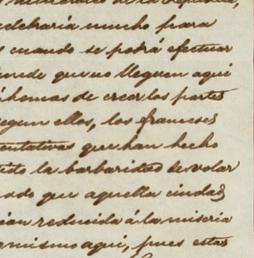 de la República,
mucho para
cuando se podrá efectuar
que no lleguen aquí
de creer los partes
según ellos, los franceses
tentativas que han hecho
la barbaridad de volar
que aquella ciudad
reducida á la miseria
mismo aquí, pues estas